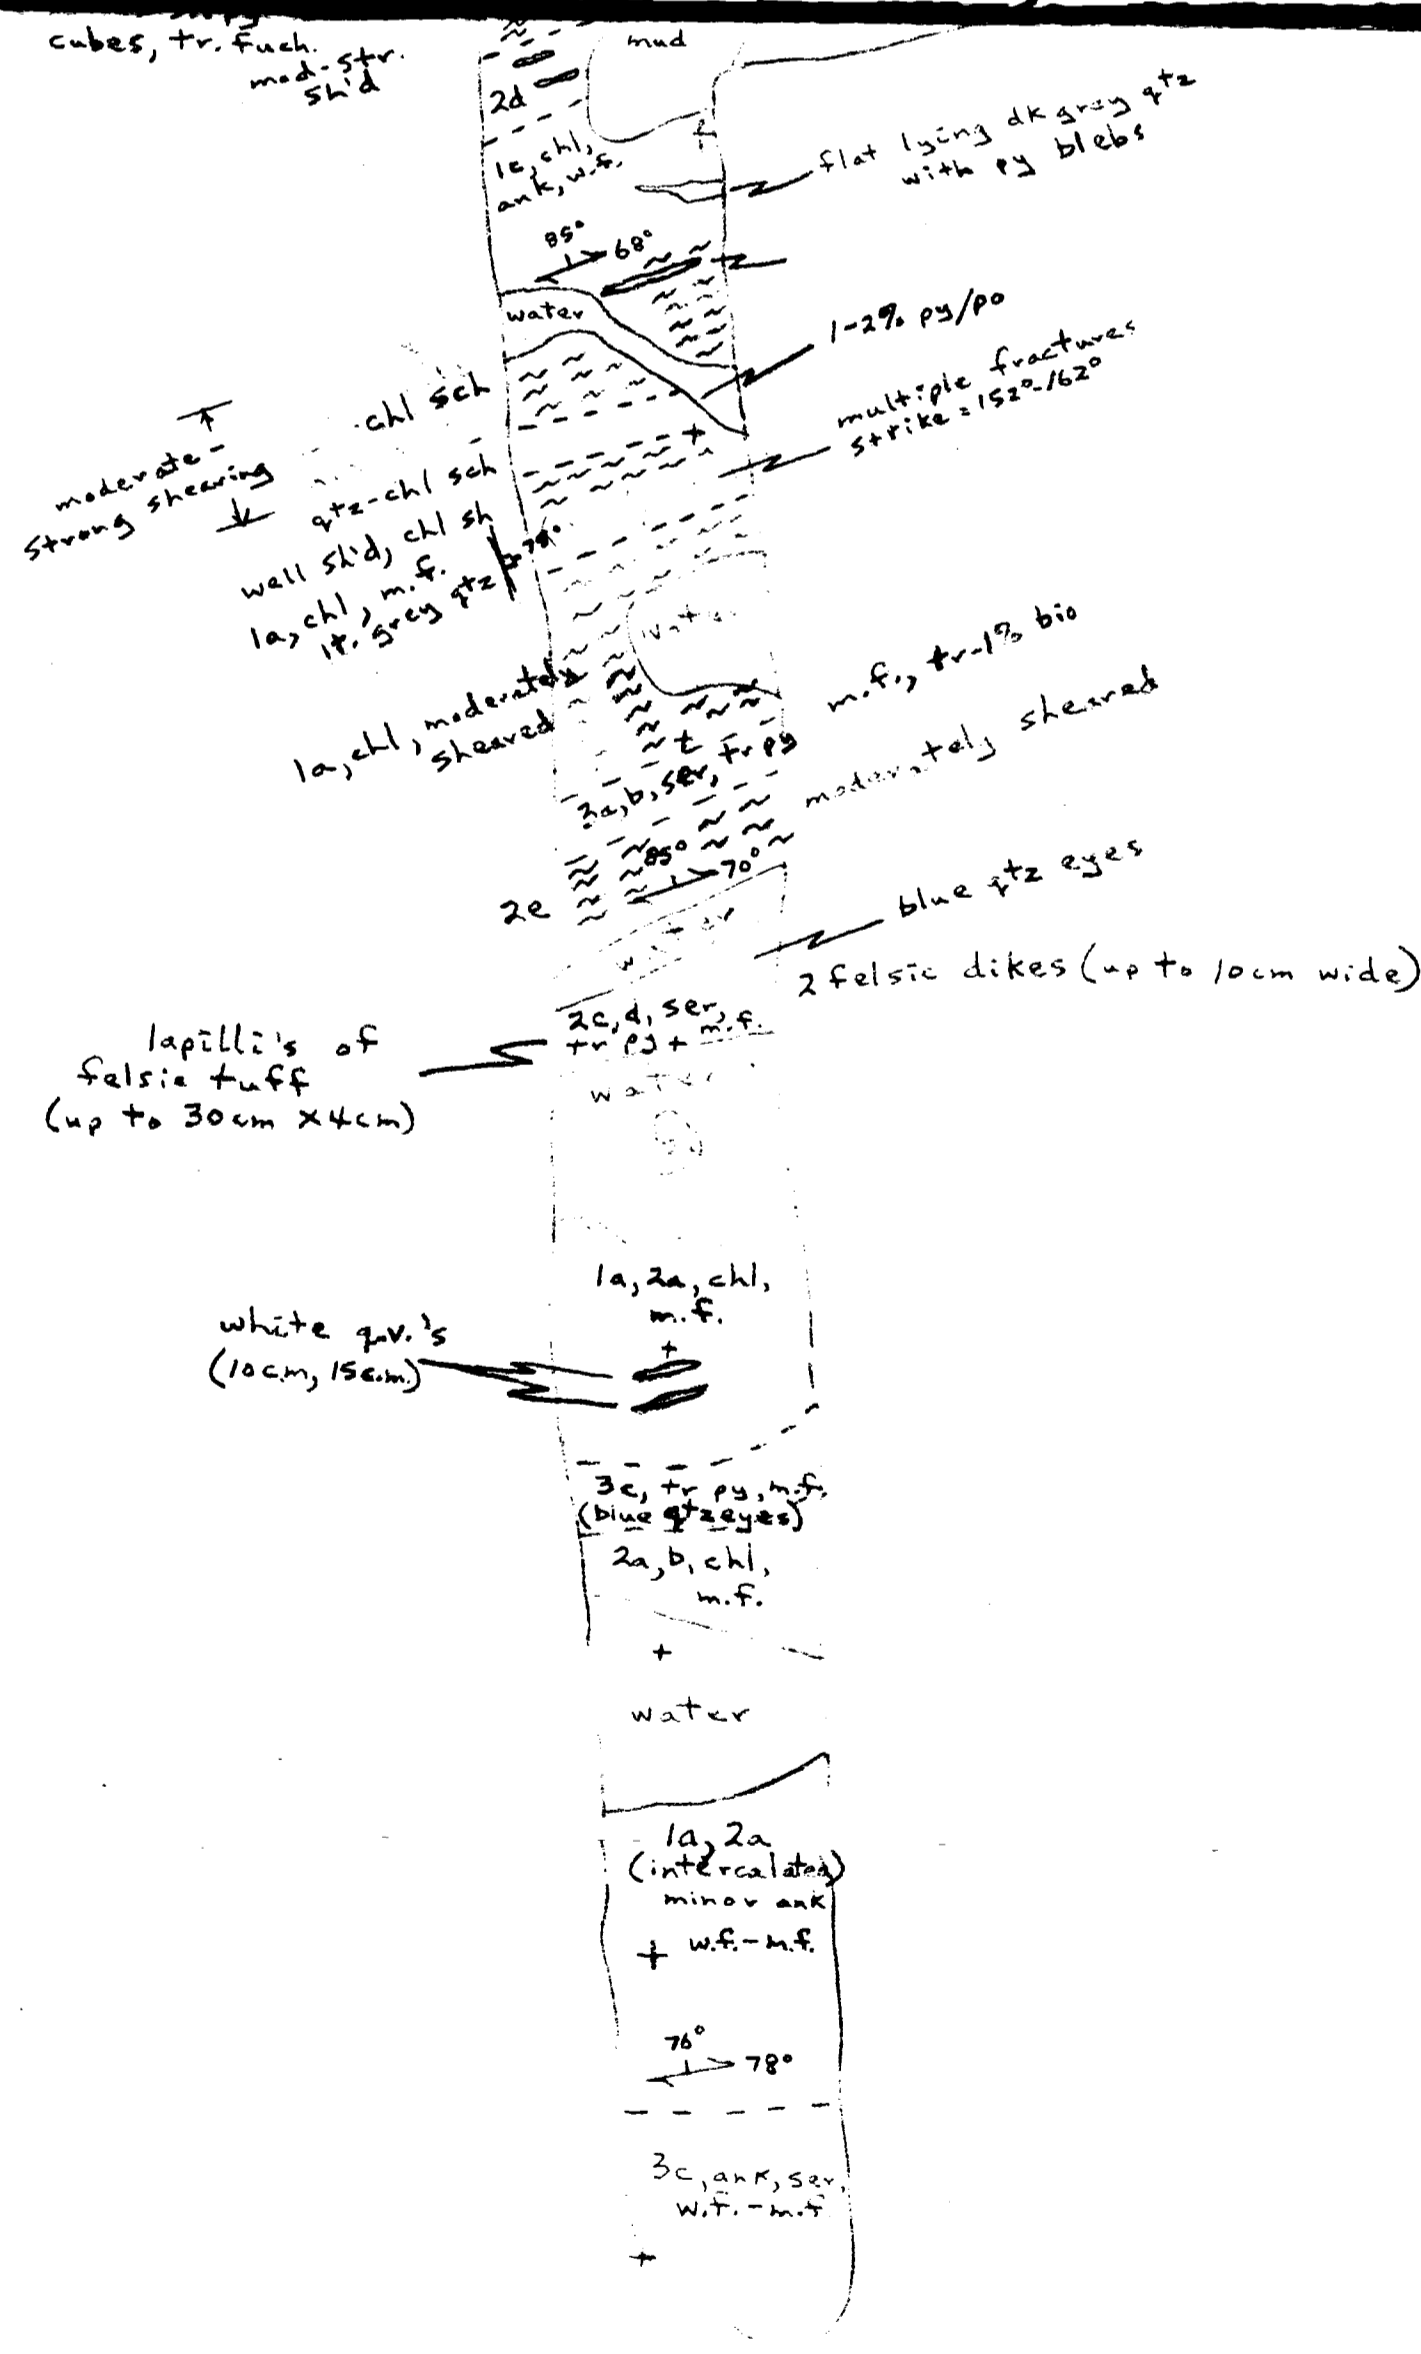 cubes, tr. fuch.
mod-str.
sh'd
mud
2d
1c, chl,
ank, w.f.
f
flat lying dk grey qtz
with py blebs
85°
68°
water
1-2% py/po
chl sch
multiple fractures
strike = 152°-162°
moderate -
strong shearing
qtz-chl sch
well sh'd, chl sh
1a, chl, m.f.
lt. grey qtz
78°
water
1a, chl, moderately
sheared
m.f., tr-1% bio
3a, b, ser, tr py
moderately sheared
85°
70°
2e
water
blue qtz eyes
2 felsic dikes (up to 10cm wide)
2c, d, ser,
tr py + m.f.
lapilli's of
felsic tuff
(up to 30cm x 4cm)
water
1a, 2a, chl,
m.f.
white q.v.'s
(10cm, 15cm)
3c, tr py, m.f.
(blue qtz eyes)
2a, b, chl,
m.f.
water
1a, 2a
(intercalated)
minor ank
w.f.-m.f.
76°
78°
3c, ank, ser,
w.f.-m.f